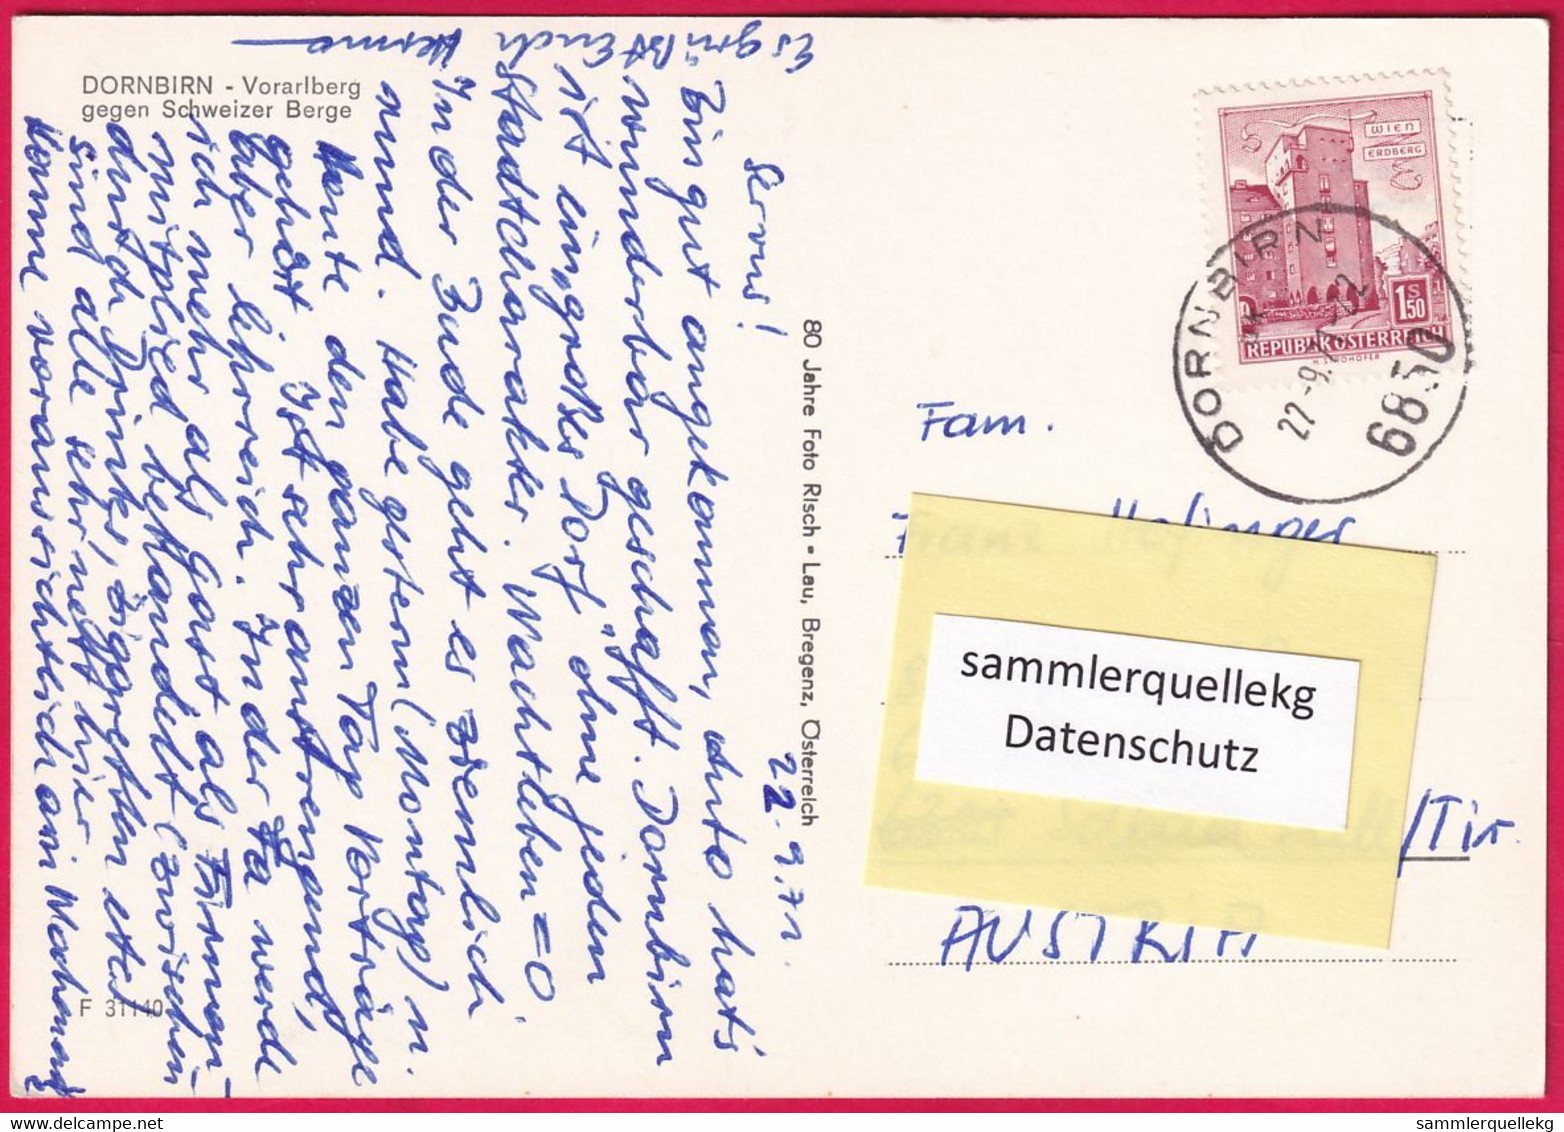 DORNBIRN - Vorarlberg
gegen Schweizer Berge
22.9.71.
Servus!
Bin gut angekommen, Auto hat's
wunderbar geschafft. Dornbirn
ist ein „großes Dorf" ohne jeden
Stadtcharakter. Nachtleben = 0
In der Bude geht es ziemlich
rund. Habe gestern (Montag) u.
heute den ganzen Tag Vorträge
gehört. Ist sehr anstrengend,
aber lehrreich. In der Fa werde
ich mehr als Gast als Firmen-
mitglied behandelt (zwischen-
durch Drinks, Ziggretten etc.)
Sind alle sehr nett hier
Komme voraussichtlich am
Es grüßt Euch
80 Jahre Foto Risch • Lau, Bregenz, Österreich
F 31140
WIEN
ERDBERG
1 S 50
REPUBLIK ÖSTERREICH
DORNBIRN
6850
Fam.
Franz Hofinger
sammlerquellekg
Datenschutz
/Tir.
AUSTRIA
sammlerquellekg